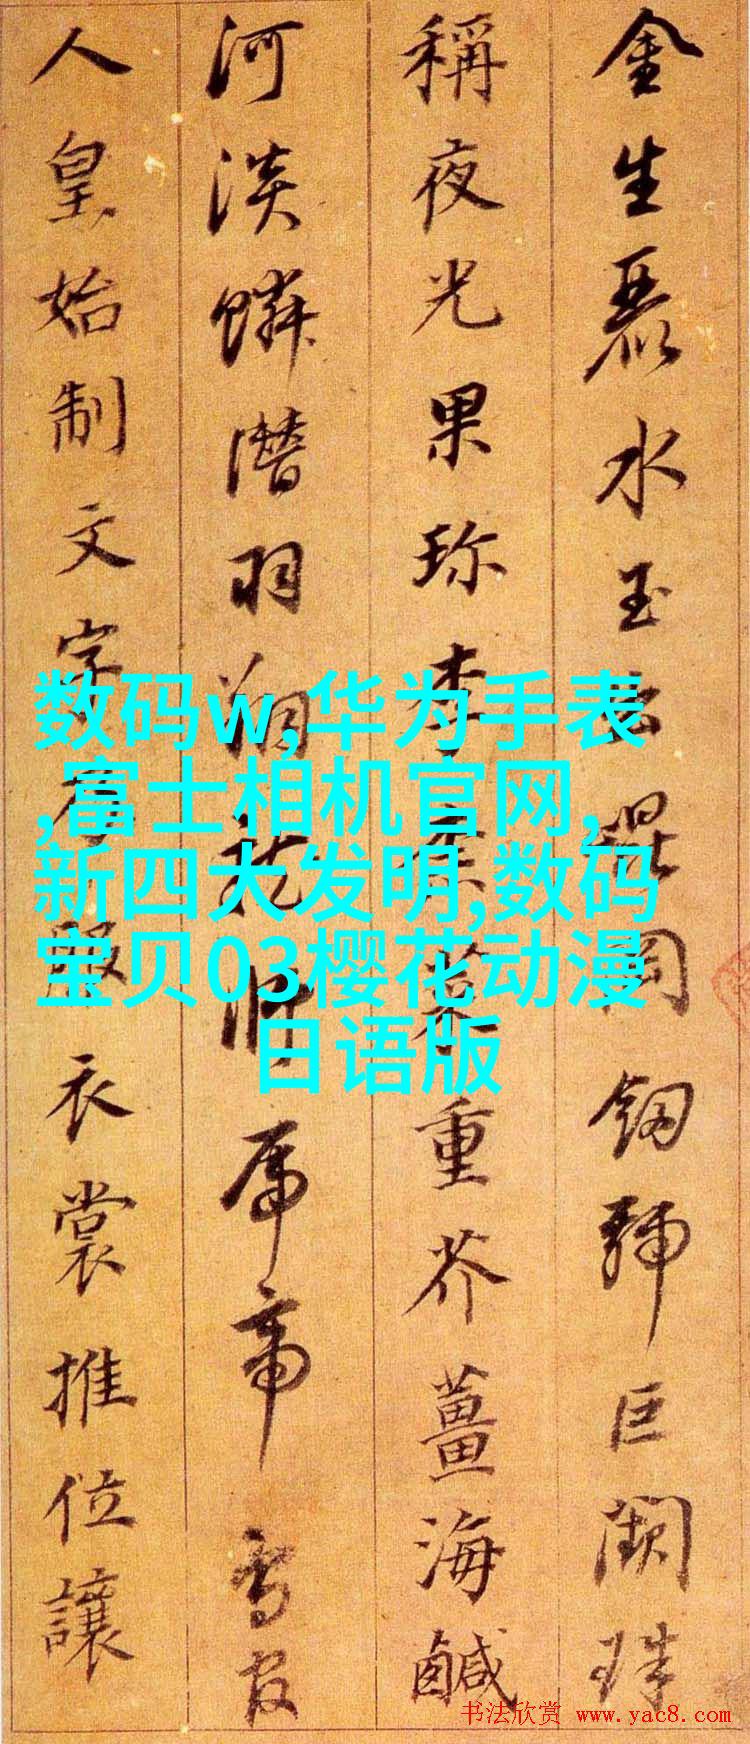 金生麗水玉出崐岡釼號巨闕珠
稱夜光果珍李柰菜重芥薑海鹹
河淡鱗潛羽翔龍師火帝鳥官
人皇始制文字乃服衣裳推位讓
数码w,华为手表
,富士相机官网,
新四大发明,数码
宝贝03樱花动漫
日语版
书法欣赏 www.yac8.com